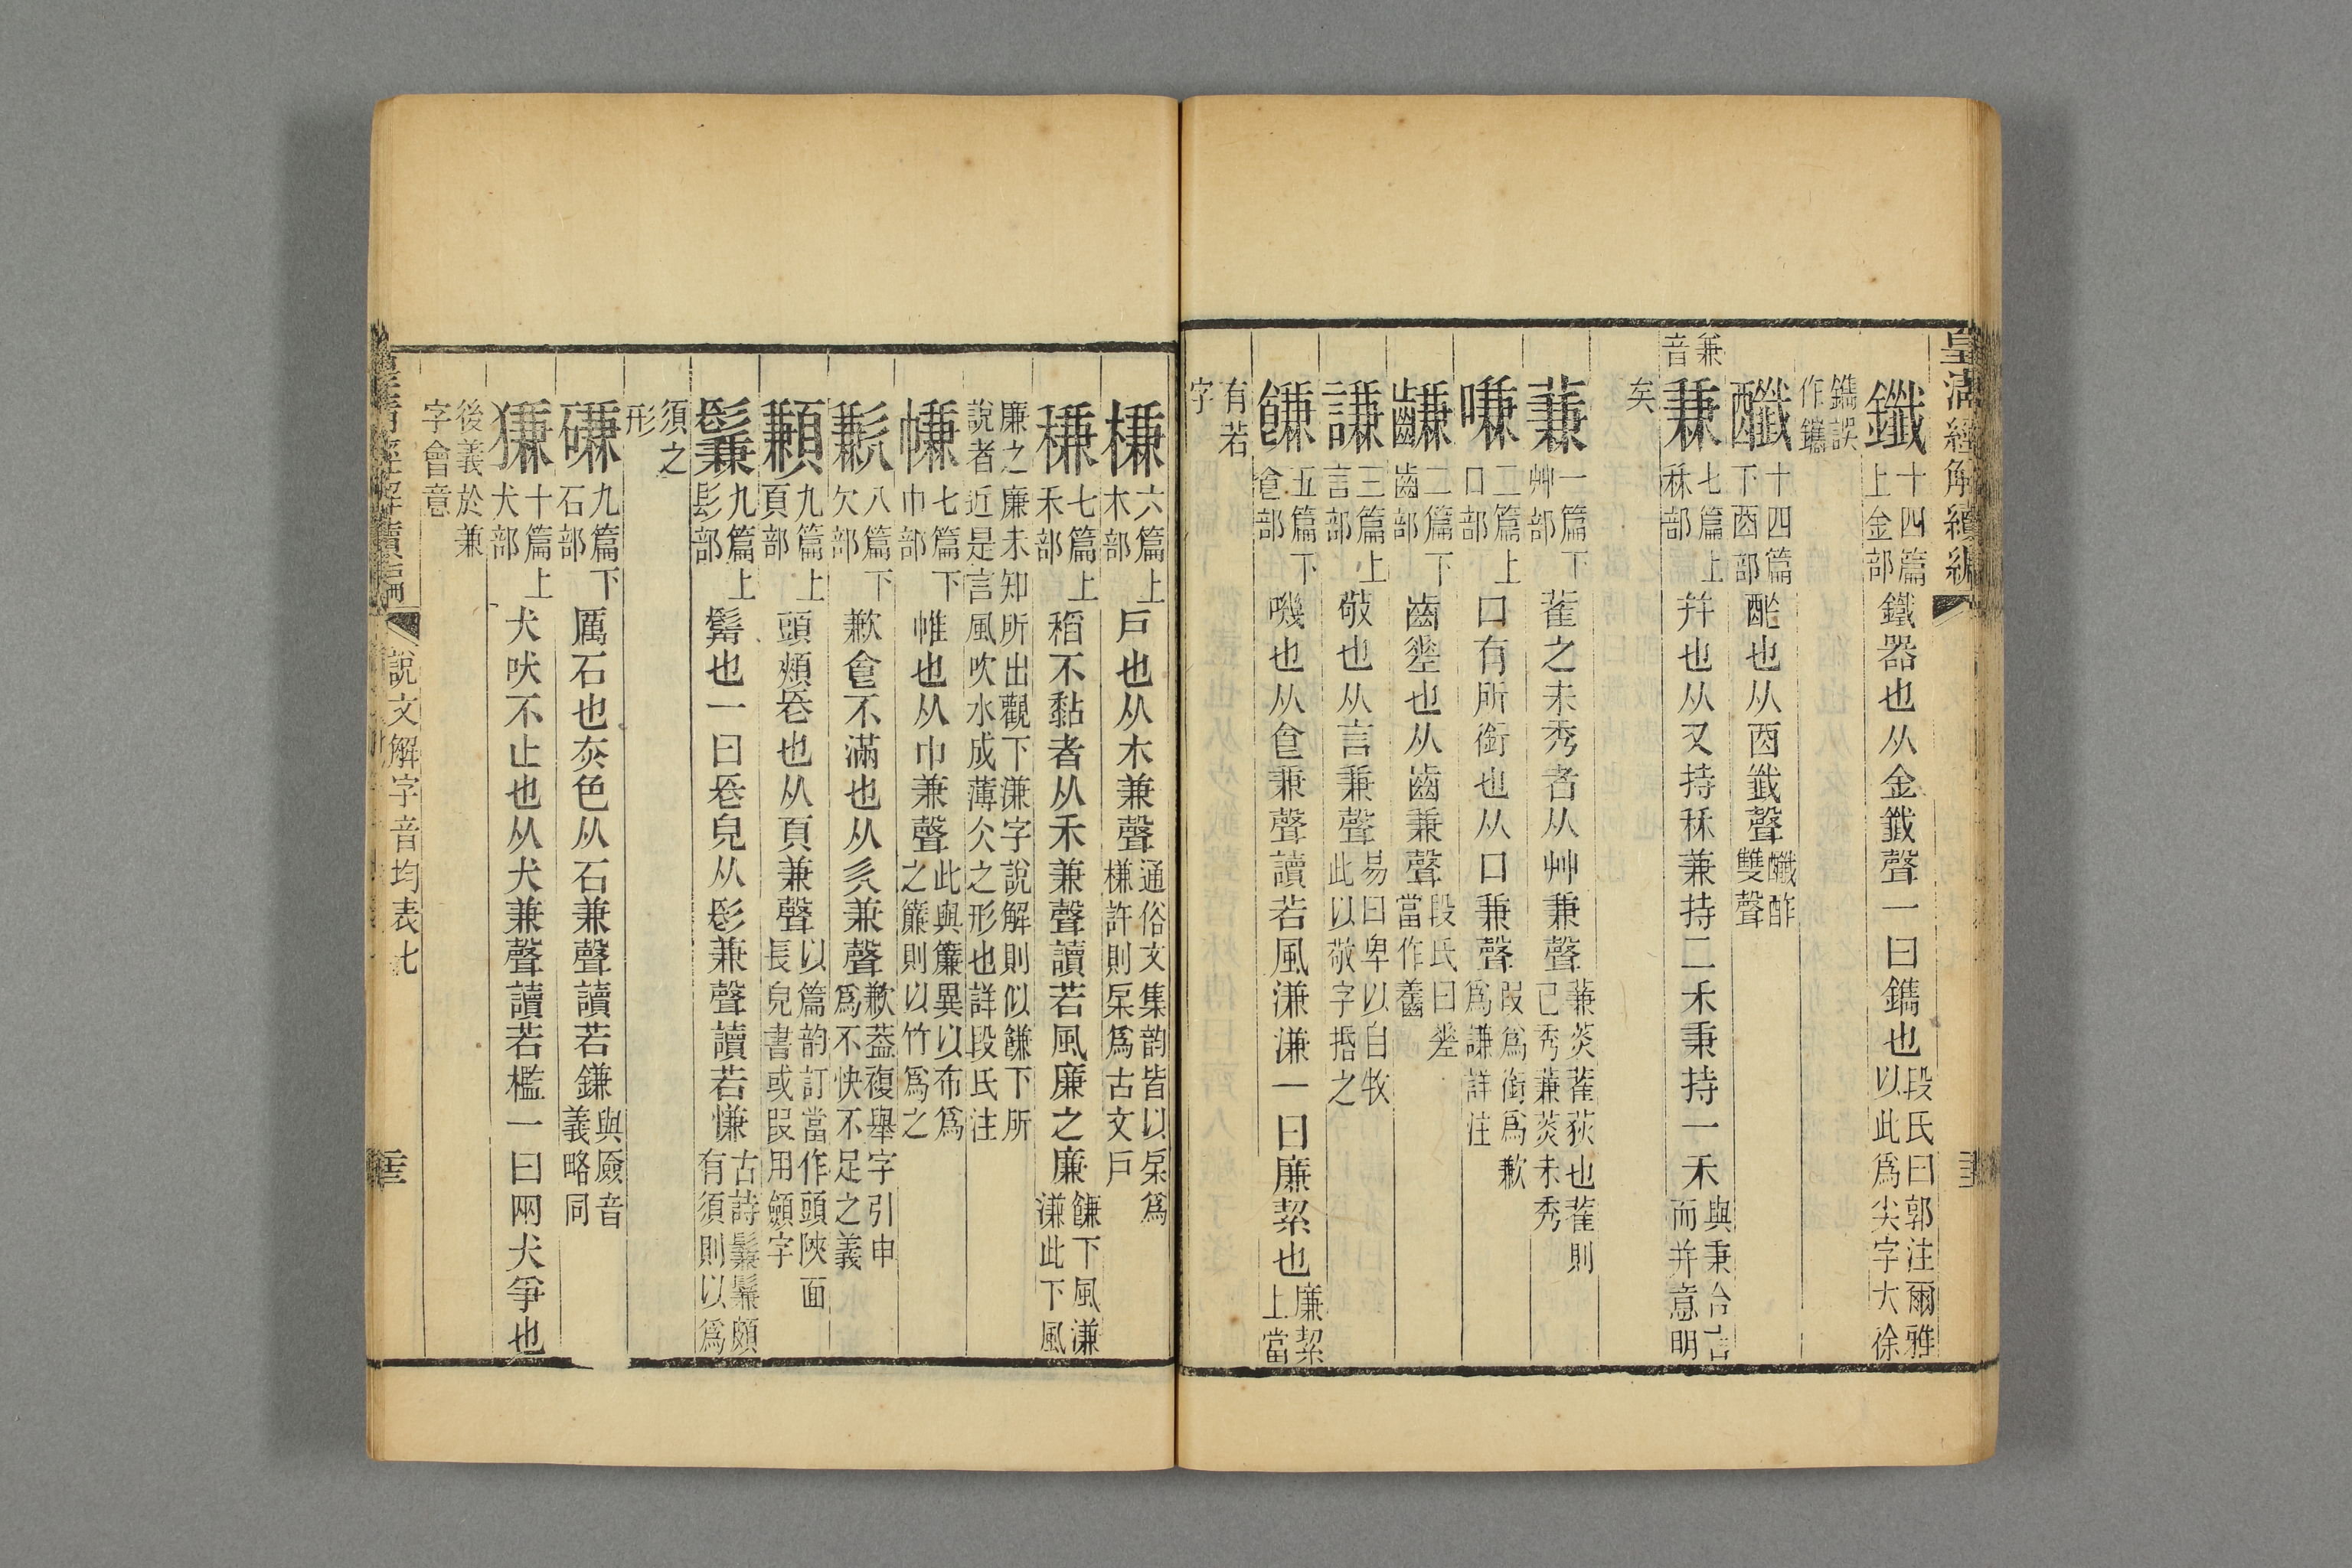 皇淸經解續編
鑯十四篇上金部鐵器也从金韱聲一曰鐫也段氏曰郭注爾雅以此爲尖字大徐
鐫誤作鑴
醶十四篇下酉部酢也从酉韱聲醶酢雙聲
兼音
兼七篇上秝部幷也从又持秝兼持二禾秉持一禾與秉合言而幷意明
矣
蒹一篇下艸部雚之未秀者从艸兼聲蒹菼雚荻也雚則已秀蒹菼未秀
嗛二篇上口部口有所銜也从口兼聲叚爲銜爲歉爲謙詳注
齸二篇下齒部齒差也从齒兼聲段氏曰差當作齹
謙三篇上言部敬也从言兼聲易曰卑以自牧此以敬字揩之
饊五篇下食部嘰也从食兼聲讀若風溓溓一曰廉絜也廉絜上當
有若字
槏六篇上木部戶也从木兼聲通俗文集韵皆以杘爲槏許則杘爲古文戶
稴七篇上禾部稻不黏者从禾兼聲讀若風廉之廉饊下風溓溓此下風
廉之廉未知所出觀下溓字說解則似饊下所說者近是言風吹水成薄仌之形也詳段氏注
㡘七篇下巾部帷也从巾兼聲此與簾異以布爲之簾則以竹爲之
歉八篇下欠部歉食不滿也从欠兼聲歉葢複舉字引申爲不快不足之義
䫡九篇上頁部頭頰長也从頁兼聲以篇韵訂當作頭陜面長皃書或叚用顩字
鬑九篇上髟部鬋也一曰長皃从髟兼聲讀若慊古詩鬑鬑頗有須則以爲
須之形
磏九篇下石部厲石也赤色从石兼聲讀若鎌與厱音義略同
㺌十篇上犬部犬吠不止也从犬兼聲讀若檻一曰兩犬爭也
後義於兼字會意
皇淸經解續編
說文解字音均表七